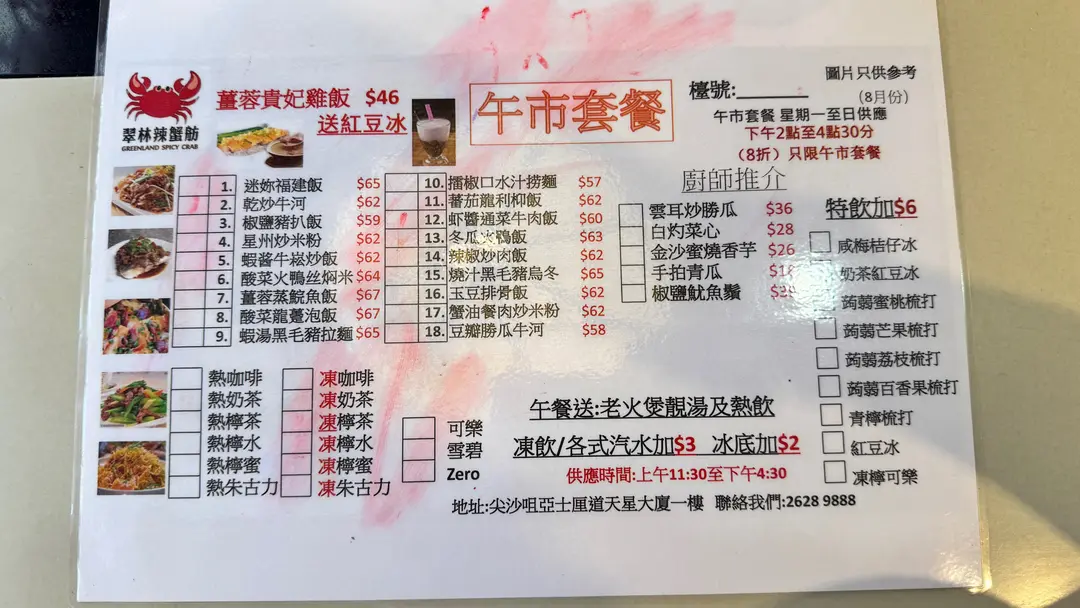 圖片只供參考
(8月份)
薑蓉貴妃雞飯 $46
送紅豆冰
午市套餐
檯號:
午市套餐 星期一至日供應
下午2點至4點30分
（8折）只限午市套餐
翠林辣蟹舫
GREENLAND SPICY CRAB
1. 迷妳福建飯 $65
2. 乾炒牛河 $62
3. 椒鹽豬扒飯 $59
4. 星州炒米粉 $62
5. 蝦酱牛崧炒飯 $62
6. 酸菜火鴨丝焖米 $64
7. 薑蓉蒸鯇魚飯 $67
8. 酸菜龍躉泡飯 $67
9. 蝦湯黑毛豬拉麵 $65
10. 擂椒口水汁撈麵 $57
11. 蕃茄龍利柳飯 $62
12. 虾醬通菜牛肉飯 $60
13. 冬瓜火鴨飯 $63
14. 辣椒炒肉飯 $62
15. 燒汁黑毛豬烏冬 $65
16. 玉豆排骨飯 $62
17. 蟹油餐肉炒米粉 $62
18. 豆瓣勝瓜牛河 $58
廚師推介
雲耳炒勝瓜 $36
白灼菜心 $28
金沙蜜燒香芋 $26
手拍青瓜
椒鹽魷魚鬚
特飲加$6
咸梅桔仔冰
奶茶紅豆冰
蒟蒻蜜桃梳打
蒟蒻芒果梳打
蒟蒻荔枝梳打
蒟蒻百香果梳打
青檸梳打
紅豆冰
凍檸可樂
熱咖啡
熱奶茶
熱檸茶
熱檸水
熱檸蜜
熱朱古力
凍咖啡
凍奶茶
凍檸茶
凍檸水
凍檸蜜
凍朱古力
可樂
雪碧
Zero
午餐送:老火煲靚湯及熱飲
凍飲/各式汽水加$3 冰底加$2
供應時間:上午11:30至下午4:30
地址:尖沙咀亞士厘道天星大廈一樓 聯絡我們:2628 9888